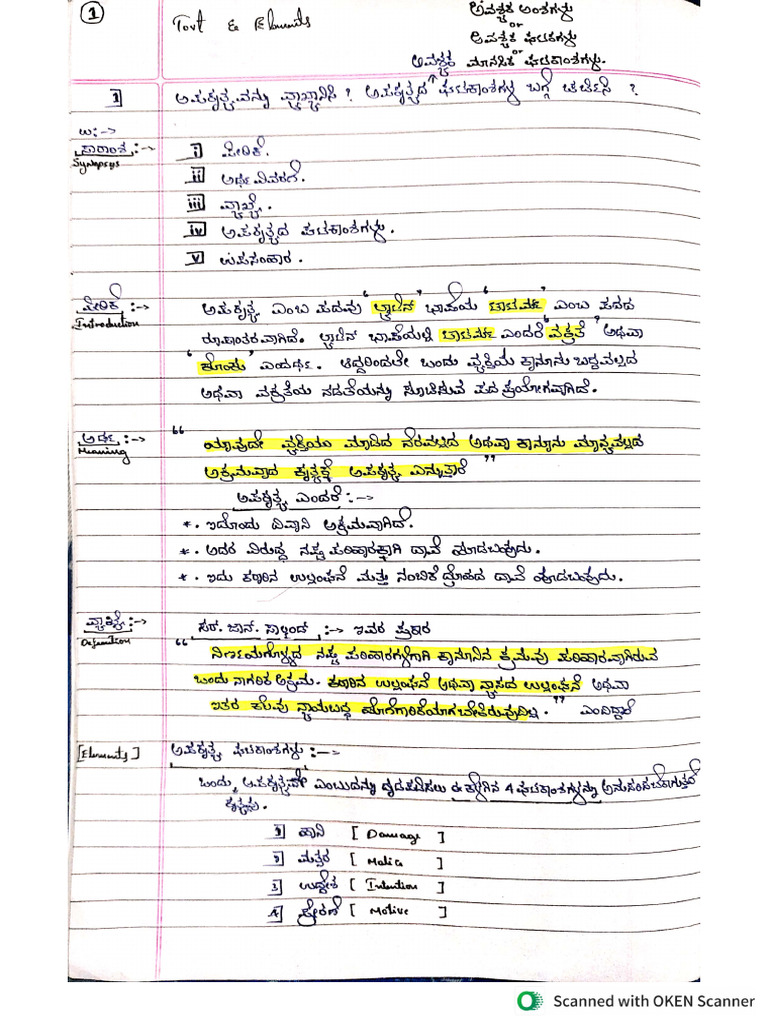 1
Tort & Elements
ಅವಶ್ಯಕ ಅಂಶಗಳು
or
ಅವಶ್ಯಕ ಘಟಕಗಳು
or
ಅವಶ್ಯಕ ಮಾನಸಿಕ ಘಟಕಾಂಶಗಳು.
1 ಅಪಕೃತ್ಯವನ್ನು ವ್ಯಾಖ್ಯಾನಿಸಿ? ಅಪಕೃತ್ಯದ ಘಟಕಾಂಶಗಳ ಬಗ್ಗೆ ಚರ್ಚಿಸಿ?
ಉ:->
ಸಾರಾಂಶ :->
Synopsys
i ಪೀಠಿಕೆ.
ii ಅರ್ಥ ವಿವರಣೆ.
iii ವ್ಯಾಖ್ಯೆ.
iv ಅಪಕೃತ್ಯದ ಘಟಕಾಂಶಗಳು.
v ಉಪಸಂಹಾರ.
ಪೀಠಿಕೆ :->
Introduction
ಅಪಕೃತ್ಯ ಎಂಬ ಪದವು "ಲ್ಯಾಟಿನ್" ಭಾಷೆಯ "ಟಾರ್ಟಮ್" ಎಂಬ ಪದದ
ರೂಪಾಂತರವಾಗಿದೆ. ಲ್ಯಾಟಿನ್ ಭಾಷೆಯಲ್ಲಿ ಟಾರ್ಟಮ್ ಎಂದರೆ "ವಕ್ರತೆ" ಅಥವಾ
"ಕೊಂಕು" ಎಂದರ್ಥ. ಆದ್ದರಿಂದಲೇ ಒಂದು ವ್ಯಕ್ತಿಯ ಕಾನೂನು ಬದ್ಧವಲ್ಲದ
ಅಥವಾ ವಕ್ರತೆಯ ನಡತೆಯನ್ನು ಸೂಚಿಸುವ ಪದ ಪ್ರಯೋಗವಾಗಿದೆ.
ಅರ್ಥ :->
Meaning
"ಯಾವುದೇ ವ್ಯಕ್ತಿಯು ಮಾಡಿದ ನೇರವಲ್ಲದ ಅಥವಾ ಕಾನೂನು ಮಾನ್ಯವಲ್ಲದ
ಅಕ್ರಮವಾದ ಕೃತ್ಯಕ್ಕೆ ಅಪಕೃತ್ಯ ಎನ್ನುತ್ತಾರೆ"
ಅಪಕೃತ್ಯ ಎಂದರೆ :->
*. ಇದೊಂದು ದಿವಾನಿ ಅಕ್ರಮವಾಗಿದೆ.
*. ಅದರ ವಿರುದ್ಧ ನಷ್ಟ ಪರಿಹಾರಕ್ಕಾಗಿ ದಾವೆ ಹೂಡಬಹುದು.
*. ಇದು ಕರಾರಿನ ಉಲ್ಲಂಘನೆ ಮತ್ತು ನಂಬಿಕೆ ದ್ರೋಹದ ದಾವೆ ಹೂಡಬಹುದು.
ವ್ಯಾಖ್ಯೆ :->
Definition
ಸರ್. ಜಾನ್. ಸಾಲ್ಮಂಡ್ :-> ಇವರ ಪ್ರಕಾರ
"ನಿರ್ಣಯಗೊಳ್ಳದ ನಷ್ಟ ಪರಿಹಾರಗಳಿಗಾಗಿ ಕಾನೂನಿನ ಕ್ರಮವು ಪರಿಹಾರವಾಗಿರುವ
ಒಂದು ನಾಗರಿಕ ಅಕ್ರಮ. ಕರಾರಿನ ಉಲ್ಲಂಘನೆ ಅಥವಾ ನ್ಯಾಸದ ಉಲ್ಲಂಘನೆ ಅಥವಾ
ಇತರ ಕೇವಲ ನ್ಯಾಯಬದ್ಧ ಹೊಣೆಗಾರಿಕೆಯಾಗಬೇಕಿರುವುದಿಲ್ಲ." ಎಂದಿದ್ದಾರೆ
[Elements]
ಅಪಕೃತ್ಯ ಘಟಕಾಂಶಗಳು :->
ಒಂದು ಅಪಕೃತ್ಯವೇ ಎಂಬುದನ್ನು ದೃಢಪಡಿಸಲು ಈ ಕೆಳಗಿನ 4 ಘಟಕಾಂಶಗಳನ್ನು
ಕೃತ್ಯವು.
1] ಹಾನಿ [Damage]
2] ಮತ್ಸರ [Malice]
3] ಉದ್ದೇಶ [Intention]
4] ಪ್ರೇರಣೆ [Motive]
Scanned with OKEN Scanner